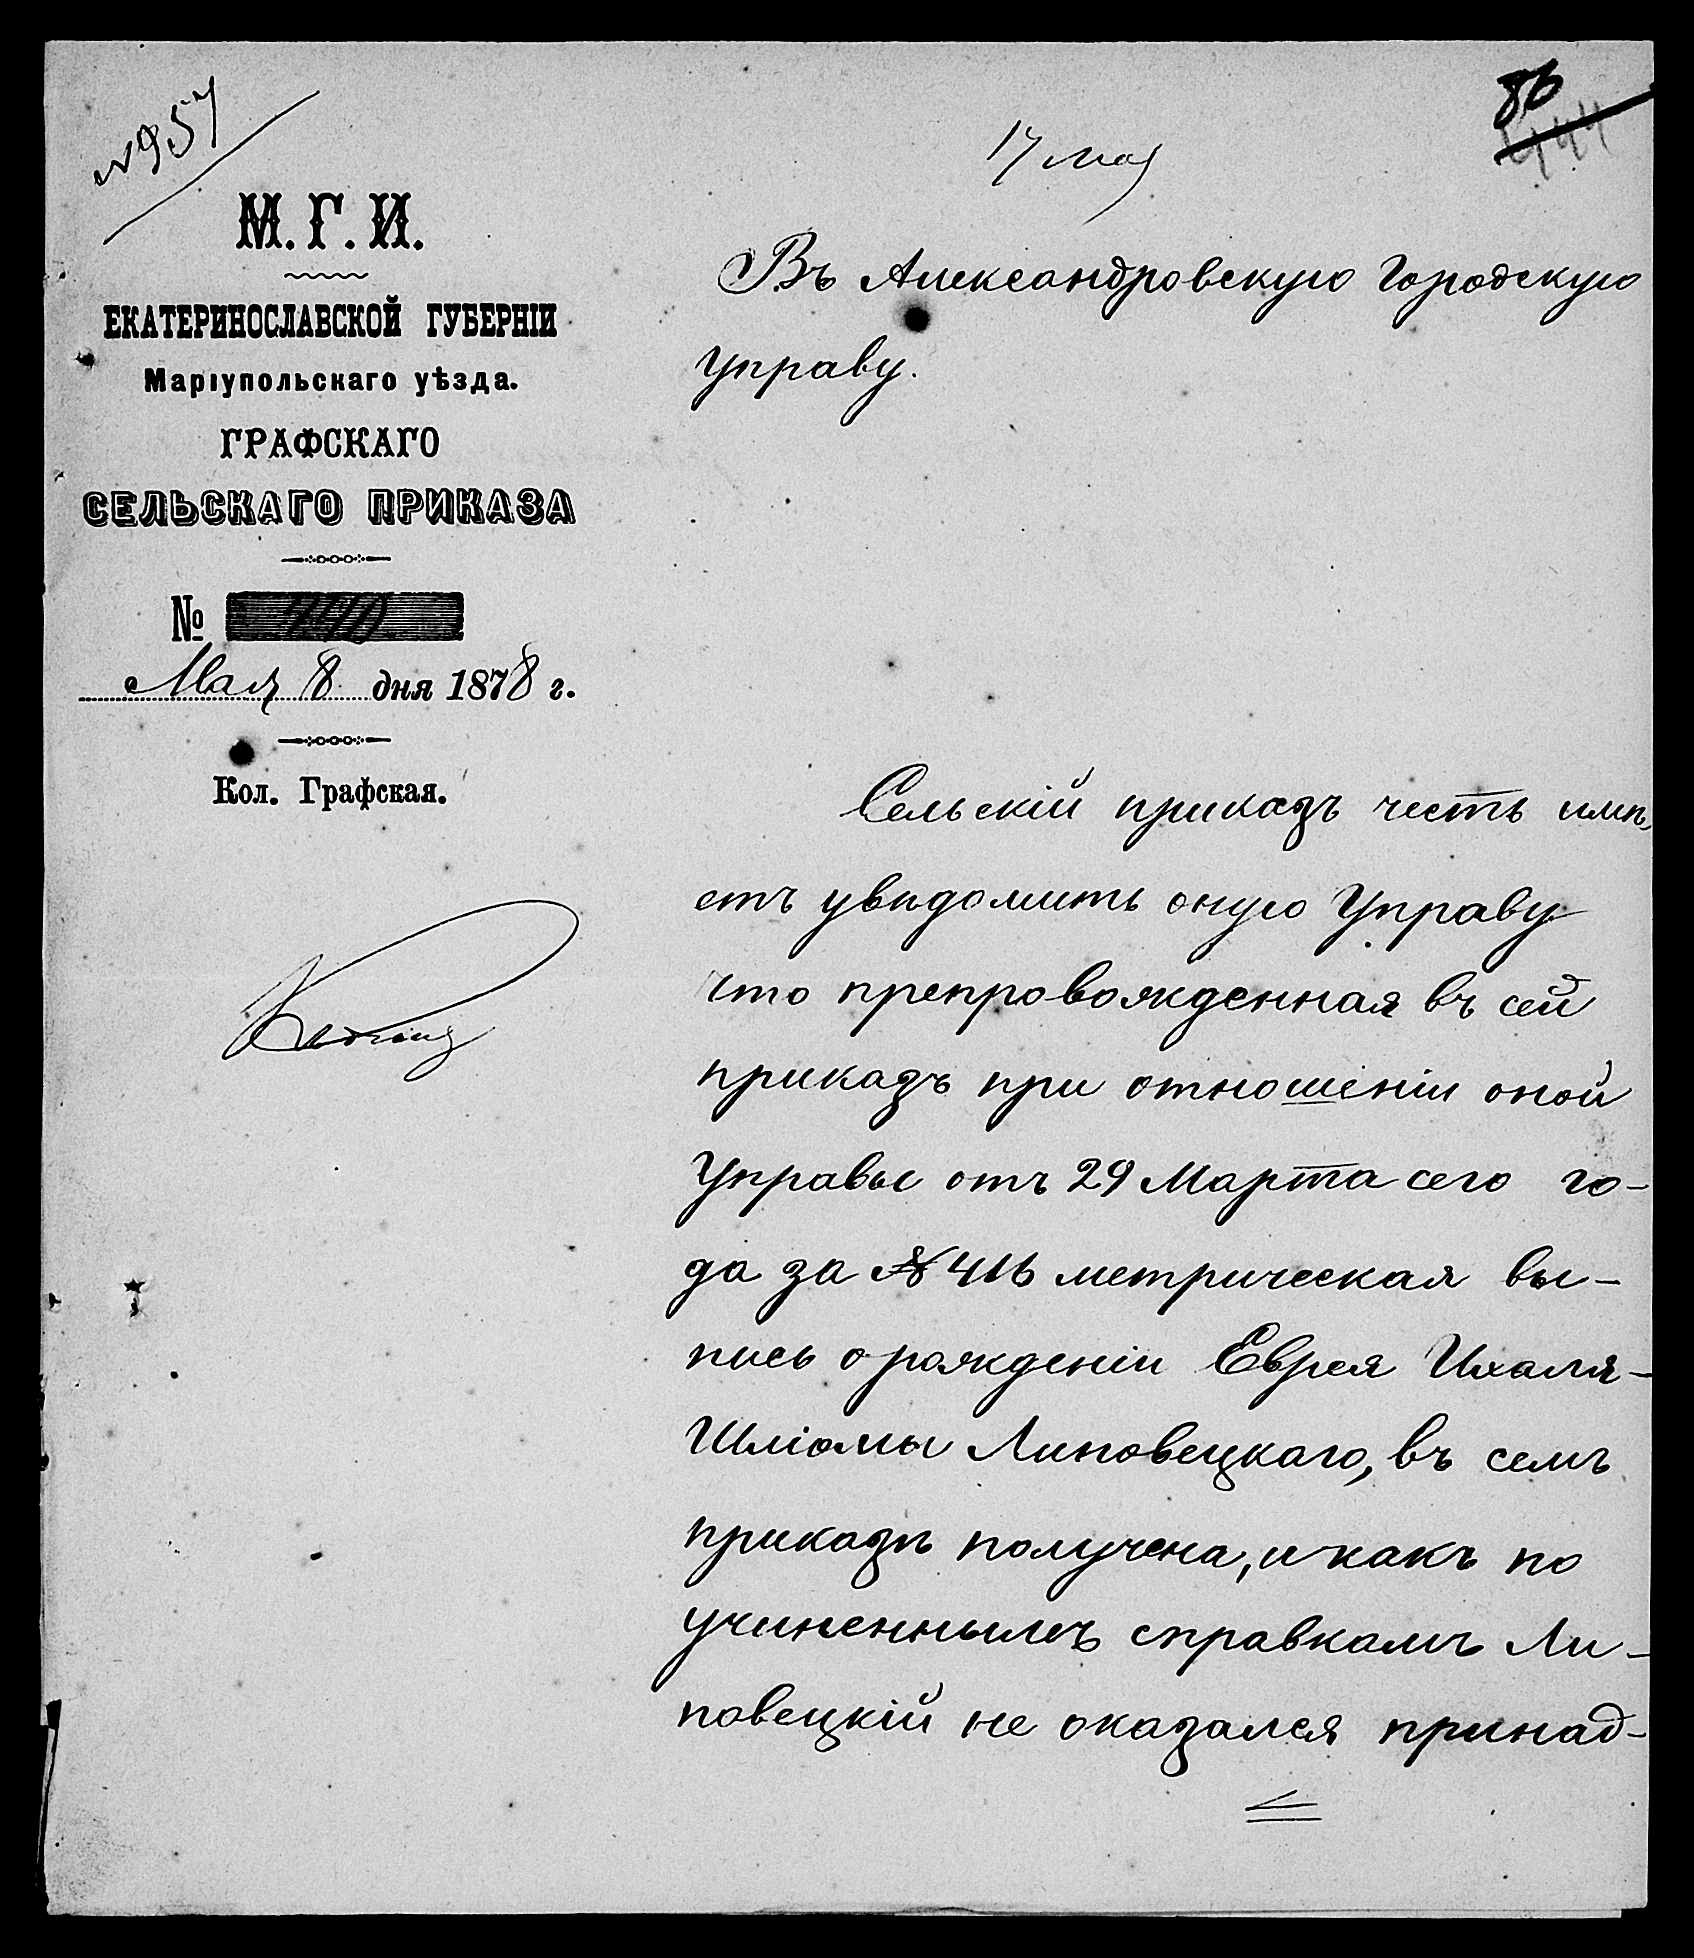 №957
86
444
17 мая
М. Г. И.
ЕКАТЕРИНОСЛАВСКОЙ ГУБЕРНІИ
Маріупольскаго уѣзда.
ГРАФСКАГО
СЕЛЬСКАГО ПРИКАЗА
№
Мая 8 дня 1878 г.
Кол. Графская.
Въ Александровскую Городскую
Управу.
Сельскій приказъ честь имѣ
етъ увѣдомить оную Управу
что препровожденная въ сей
приказъ при отношеніи оной
Управы отъ 29 Марта сего го-
да за № 416 метрическая вы-
пись о рожденіи Еврея Ихаля-
Шліомы Липовецкаго, въ семъ
приказѣ получена, и какъ по
учиненнымъ справкамъ Ли-
повецкій не оказался принад-